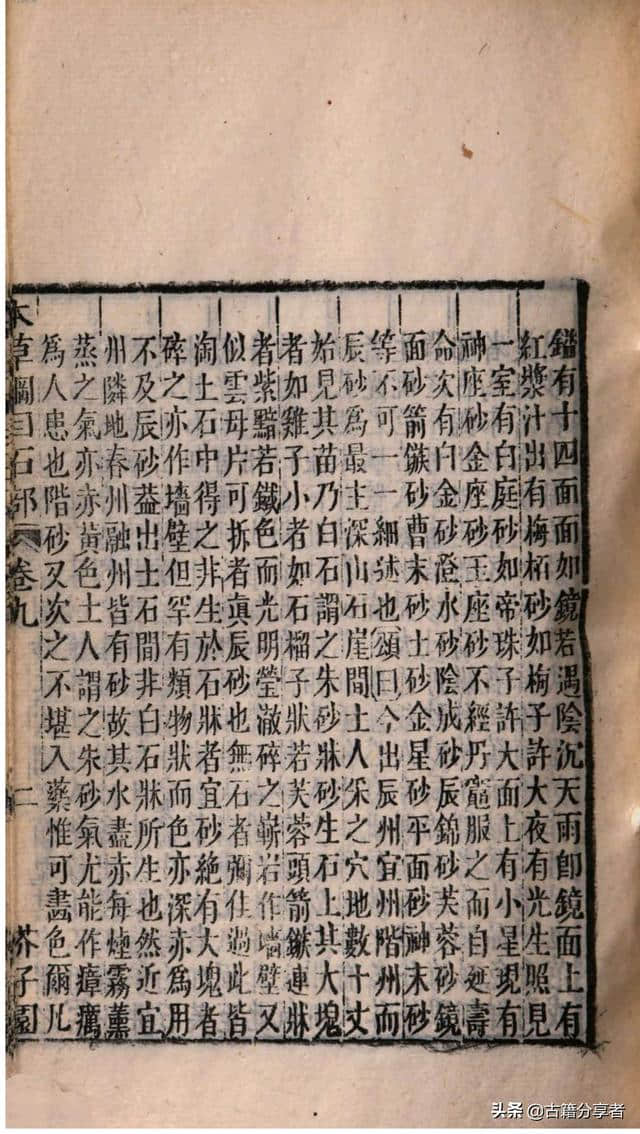 鎰有十四面面如鏡若遇陰沉天雨卽鏡面上有
紅漿汁出有梅栢砂如梅子許大夜有光生照見
一室有白庭砂如帝珠子許大面上有小星現有
神座砂金座砂玉座砂不經丹竈服之而自延壽
命次有白金砂澄水砂陰成砂辰錦砂芙蓉砂鏡
面砂箭鏃砂曹末砂土砂金星砂平面砂神末砂
等不可一一細述也頌曰今出辰州宜州階州而
辰砂爲最生深山石崖間土人采之穴地數十丈
始見其苗乃白石謂之朱砂牀砂生石上其大塊
者如雞子小者如石榴子狀若芙蓉頭箭鏃連牀
者紫黯若鐵色而光明瑩澈碎之嶄岩作墻壁又
似雲母片可拆者眞辰砂也無石者彌佳過此皆
淘土石中得之非生於石牀者宜砂絶有大塊者
碎之亦作墻壁但罕有類物狀而色亦深亦爲用
不及辰砂葢出土石間非白石牀所生也然近宜
州隣地春州融州皆有砂故其水盡赤每煙霧薰
蒸之氣亦赤黃色土人謂之朱砂氣尤能作瘴癘
爲人患也階砂又次之不堪入藥惟可畫色爾凡
本草綱目石部 卷九 二 芥子園
头条 @古籍分享者